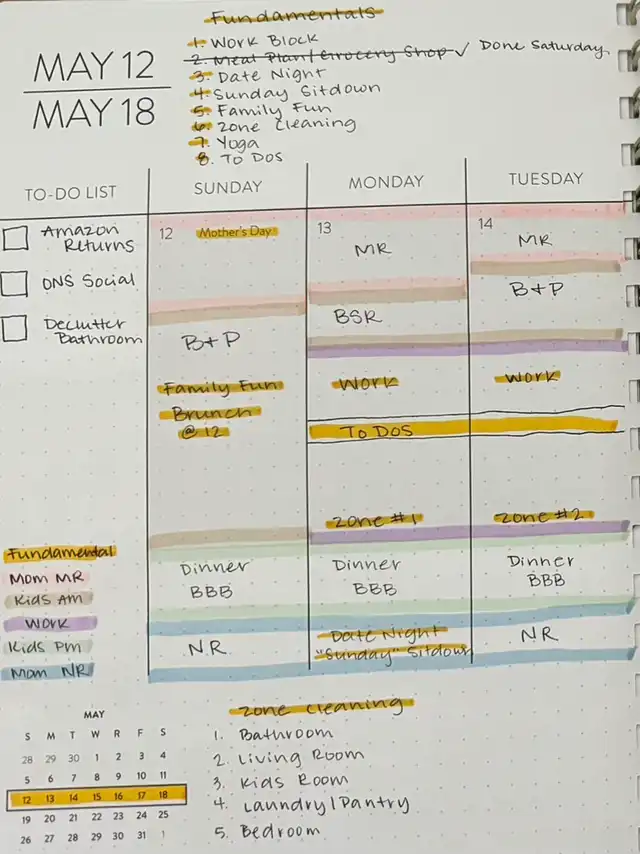 Fundamentals
1. Work Block
2. Meal Plan/Grocery Shop ✓ Done Saturday
3. Date Night
4. Sunday Sitdown
5. Family Fun
6. Zone Cleaning
7. Yoga
8. To Dos
MAY 12
MAY 18
TO-DO LIST
Amazon
Returns
DNS Social
Declutter
Bathroom
Fundamental
Mom MR
Kids Am
Work
Kids Pm
Mom NR
SUNDAY
12 Mother's Day
B+P
Family Fun
Brunch
@ 12
Dinner
BBB
NR
MONDAY
13
MR
BSR
Work
To Dos
Zone #1
Dinner
BBB
Date Night
"Sunday" Sitdown
TUESDAY
14
MR
B+P
Work
Zone #2
Dinner
BBB
NR
MAY
S M T W R F S
28 29 30 1 2 3 4
5 6 7 8 9 10 11
12 13 14 15 16 17 18
19 20 21 22 23 24 25
26 27 28 29 30 31 1
Zone Cleaning
1. Bathroom
2. Living Room
3. Kids Room
4. Laundry/Pantry
5. Bedroom